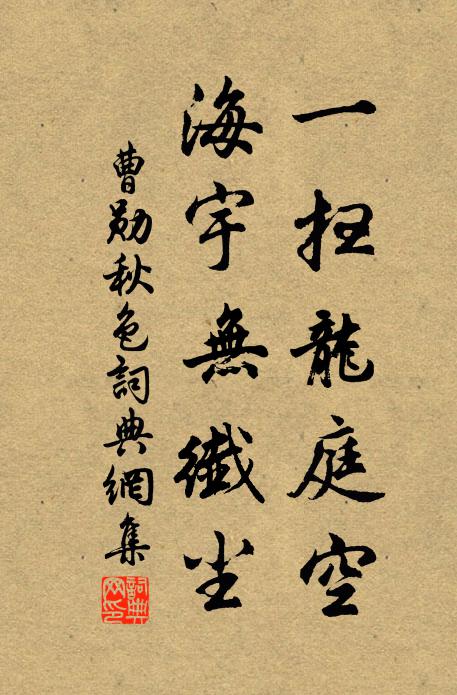 一扫龍庭空
海宇無纖尘
曹勋秋色詞典網集
詞典网印